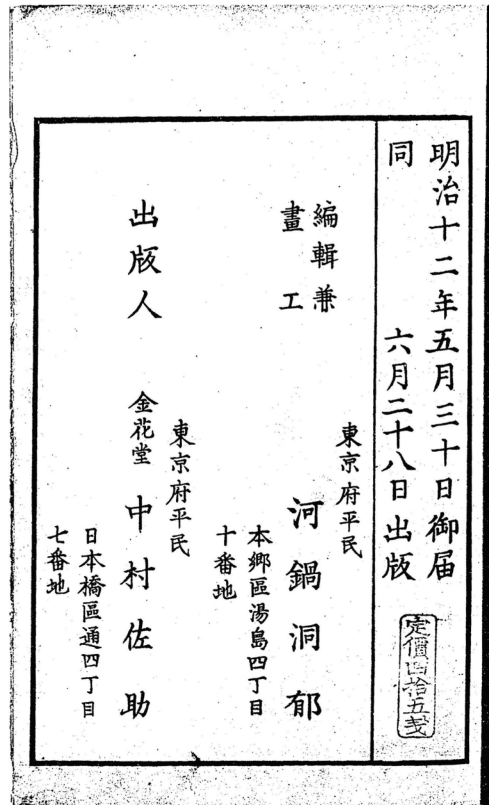 明治十二年五月三十日御届
同 六月二十八日出版
定價四拾五戔
編輯兼
畫工
東京府平民
河鍋洞郁
本郷區湯島四丁目
十番地
出版人
東京府平民
金花堂 中村佐助
日本橋區通四丁目
七番地